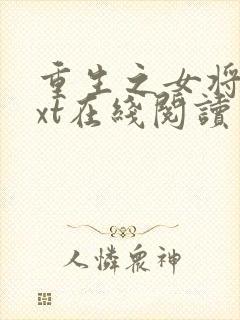 重生之女将
xt在綫閱讀
人憐眾神